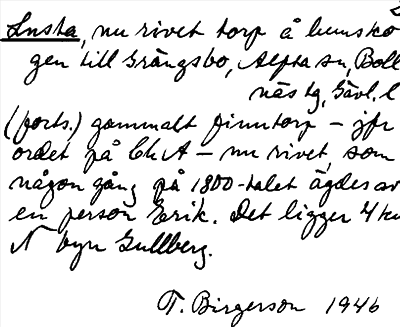 Lusta, nu rivet torp å hemsko
gen till Grängsbo, Alfta sn, Boll
näs tg, Gävl. l
(forts.) gammalt finntorp – jfr
ordet på Ch A – nu rivet, som
någon gång på 1800-talet ägdes av
en person Erik. Det ligger 4 km
N byn Gullberg.
T. Birgerson 1946